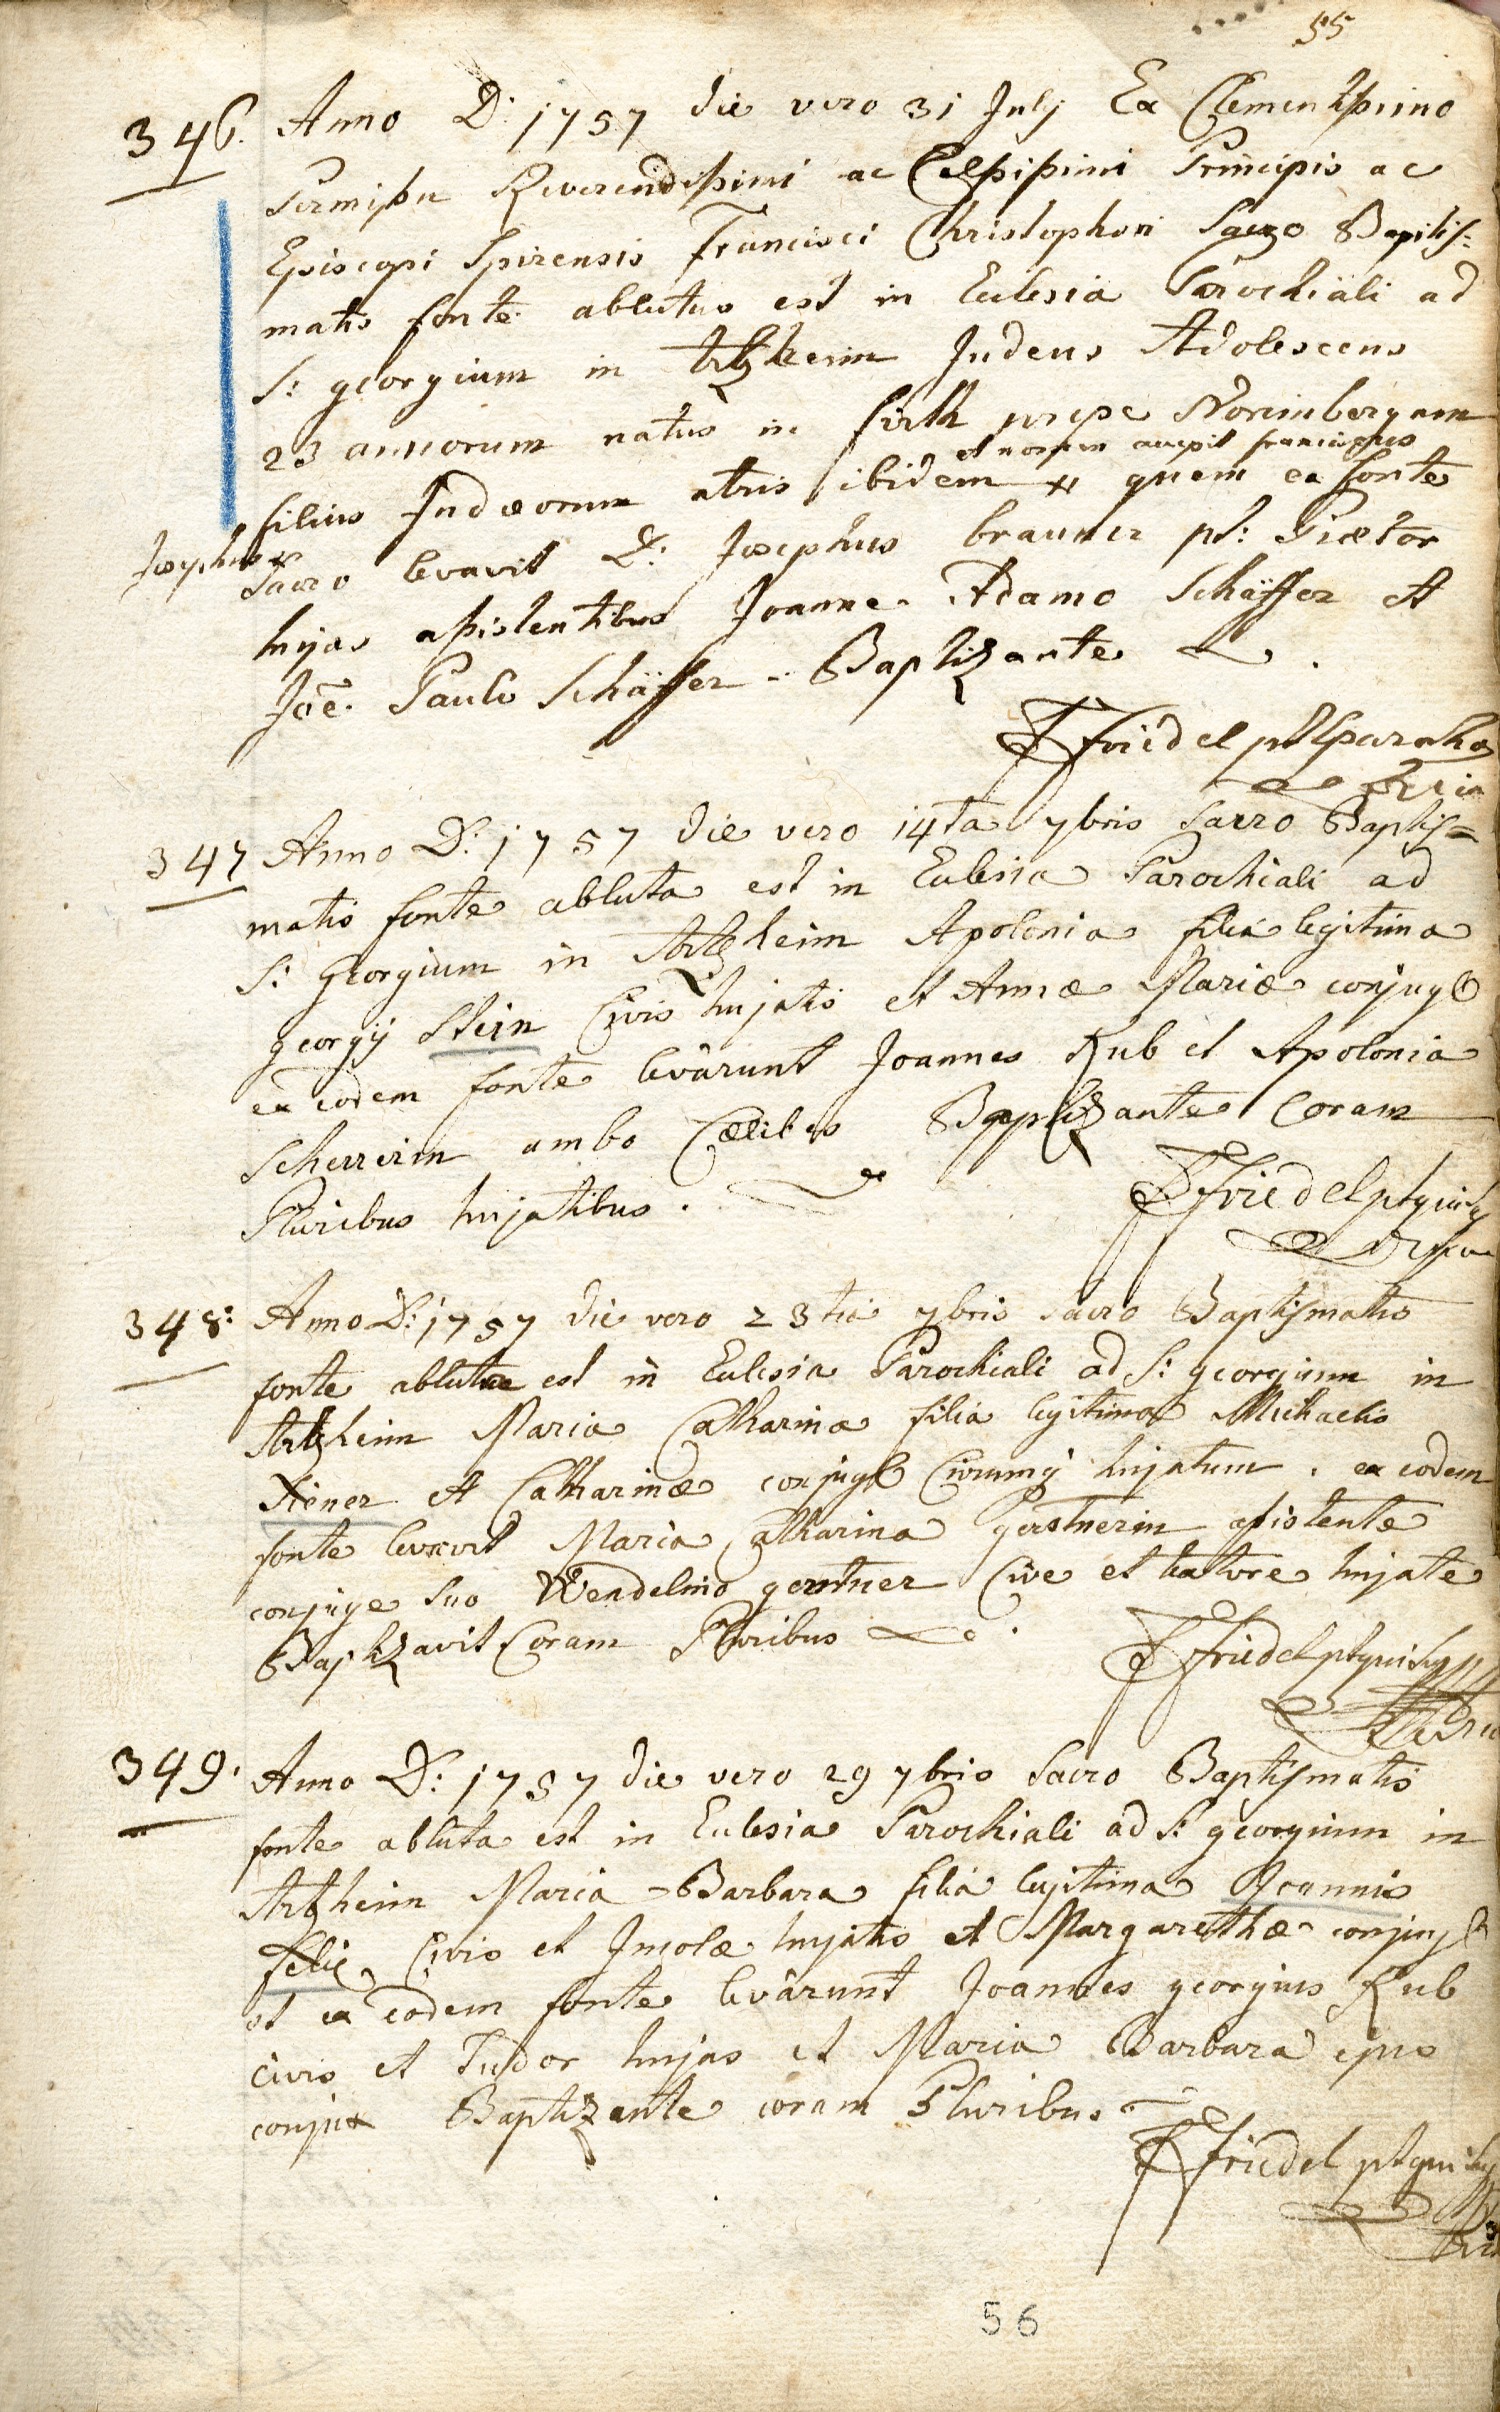 55
346. Anno D: 1757 die vero 31 Julj Ex Clementissimo
Permissu Reverendissimi ac Celsissimi Principis ac
Episcopi Spirensis Francisci Christophori Sacro Baptis=
matis fonte ablutus est in Eclesia Parochiali ad
S: georgium in Artzheim Judeus Adolescens
23 annorum natus in fürth prope Norimbergam
et nomen accepit franciscus
filius Judæorum atris ibidem x quem ex fonte
Josephus x
Sacro levavit D: Josephus brauner pt: Prætor
hujas assistentibus Joanne Adamo Schäffer et
Joē. Paulo Schäffer - Baptizante
Friedel pt
347 Anno D: 1757 die vero 14ta 7bris Sacro Baptis=
matis fonte abluta est in Eclesia Parochiali ad
S: georgium in Artzheim Apolonia filia legitima
georgij Stein Civis hujatis et Annæ Mariæ conjug
ex eodem fonte levârunt Joannes Kub et Apolonia
Scherrerin ambo Cælibes Baptizante Coram
Pluribus hujatibus.
Friedel pt
348: Anno D: 1757 die vero 23tia 7bris sacro Baptismatis
fonte abluta est in Eclesia Parochiali ad S: georgium in
Artzheim Maria Catharina filia legitima Michaelis
Xener et Catharinæ conjug Civium hujatum. ex eodem
fonte levavit Maria Catharina gerstnerin assistente
conjuge suo Wendelino gerstner Cive et textore hujate
Baptizavit Coram Pluribus
Friedel pt
349. Anno D: 1757 die vero 29 7bris Sacro Baptismatis
fonte abluta est in Eclesia Parochiali ad S: georgium in
Artzheim Maria Barbara filia legitima Joannis
felix Civis et Incolæ hujatis et Margarethæ conjug
et ex eodem fonte levârunt Joannes georgius Kub
civis et Tudor hujas et Maria Barbara ejus
conjux Baptizante coram Pluribus
Friedel pt
56